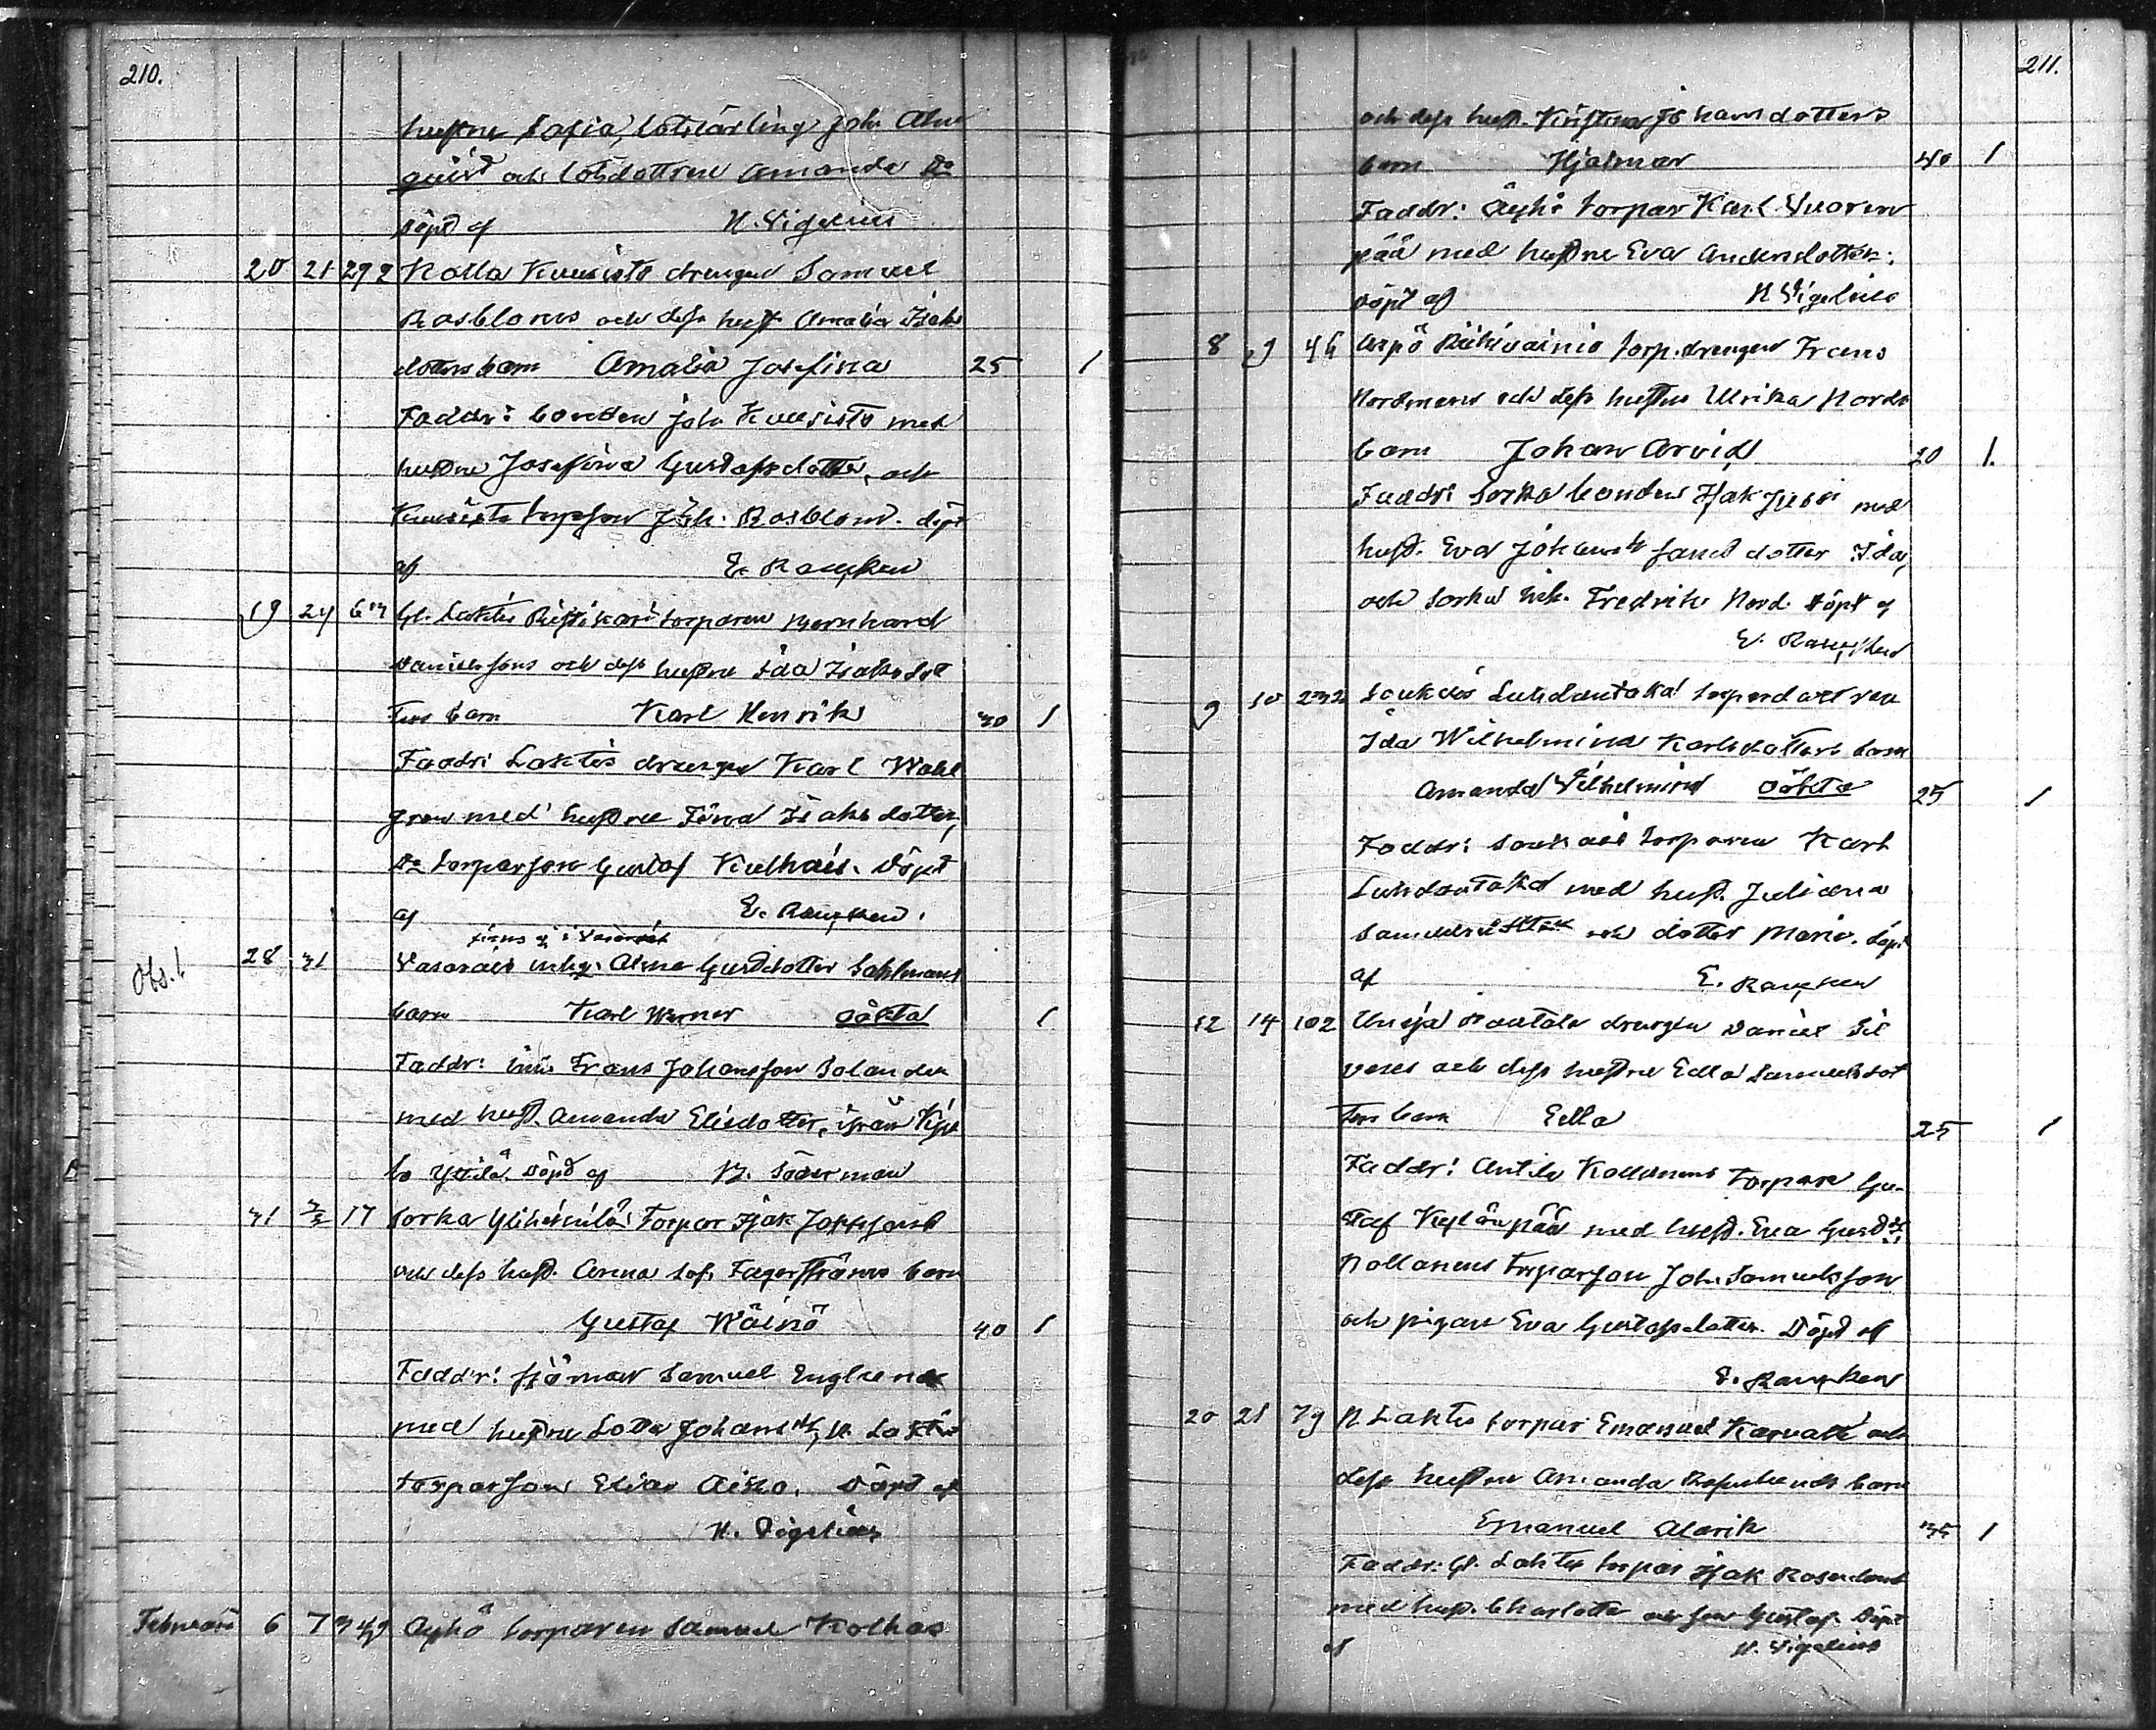 210.
hustrun Sofia, lotslärling Joh. Alm
qvist och lotsdottren Amanda Do
döpt af H. Vigelius
20 21 292 Kolla Kuusisto drengen Samuel
Rosbloms och dess hust. Amalia Isaks
dotters barn Amalia Josefina 25 1
Faddr: bonden Joh. Kuusisto med
hustru Josefina Gustafsdotter, och
Kuusisto torpson Joh. Rosblom. döpt
af E. Rancken
19 24 Gl. Laktis Ristikari torparen Bernhard
Danielssons och dess hustru Ida Isaksdot
ters barn Karl Henrik 30 1
Faddr: Laktis drengen Karl Wahl
gren med hustru Isaksdotter,
Do torparson Gustaf Kulhais. Döpt
af E. Rancken.
finns ej i Vasarais
Obs.! 28 31 Vasarais inhys. Alma Gustdotter Sahlmans
barn Karl Werner oäkta 1
Faddr: inh. Frans Johansson Solander
med hust. Amanda Elisdotter, ifrån
Yttilä. Döpt af K. Söderman
31 2/2 17 Sorka Ylikylä Torpar Isak
och dess hust. Anna Sof. Fagerströms barn
Gustaf Wäinö 40 1
Faddr: sjöman Samuel Englund
med hustru Lotta Johansdr, N. Laktis
torparson Elias Aisko. Döpt af
H. Vigelius
Februari 6 7 349 Ayhö torparen Samuel Kolhas
211.
och dess hust. Kristina Johansdotters
barn Hjalmar 40 1
Faddr: Äyhö torpar Karl Vuoren
pää med hustru Eva Andersdotter.
döpt af H Vigelius
8 9 46 Arpö Riihivainio torp. drengen Frans
Nordmans och dess hustru Ulrika Nords
barn Johan Arvid 20 1.
Faddr: Sorka bonden Isak Jussi med
hust. Eva Johansdr samt dotter Ida,
och Sorka inh. Fredrik Nord. Döpt af
E. Rancken
9 10 232 Soukais Luhdantaka torpardottren
Ida Wilhelmina Karlsdotters barn
Amanda Vilhelmina oäkta 25 1
Faddr: Soukais torparen Karl
Luhdantaka med hust. Juliana
Samuelsdotter och dotter Maria. döpt
af E. Rancken
12 14 102 Unaja Rautala drengen Daniel Sil
vers och dess hustru Edla Samuelsdot
ters barn Edla 25 1
Faddr: Antila Kollanens Torpare Gu-
staf Kylänpää med hust. Eva Gustdr,
Kollanens torparson Joh. Samuelsson
och pigan Eva Gustafsdotter. Döpt af
E. Rancken
20 21 79 N Laktis torpar Emanuel Karvatti och
dess hustru Amanda barn
Emanuel Alarik 35 1
Faddr: Gl. Laktis torpar Isak Rosenlund
med hust. Charlotta och son Gustaf. Döpt
af H. Vigelius